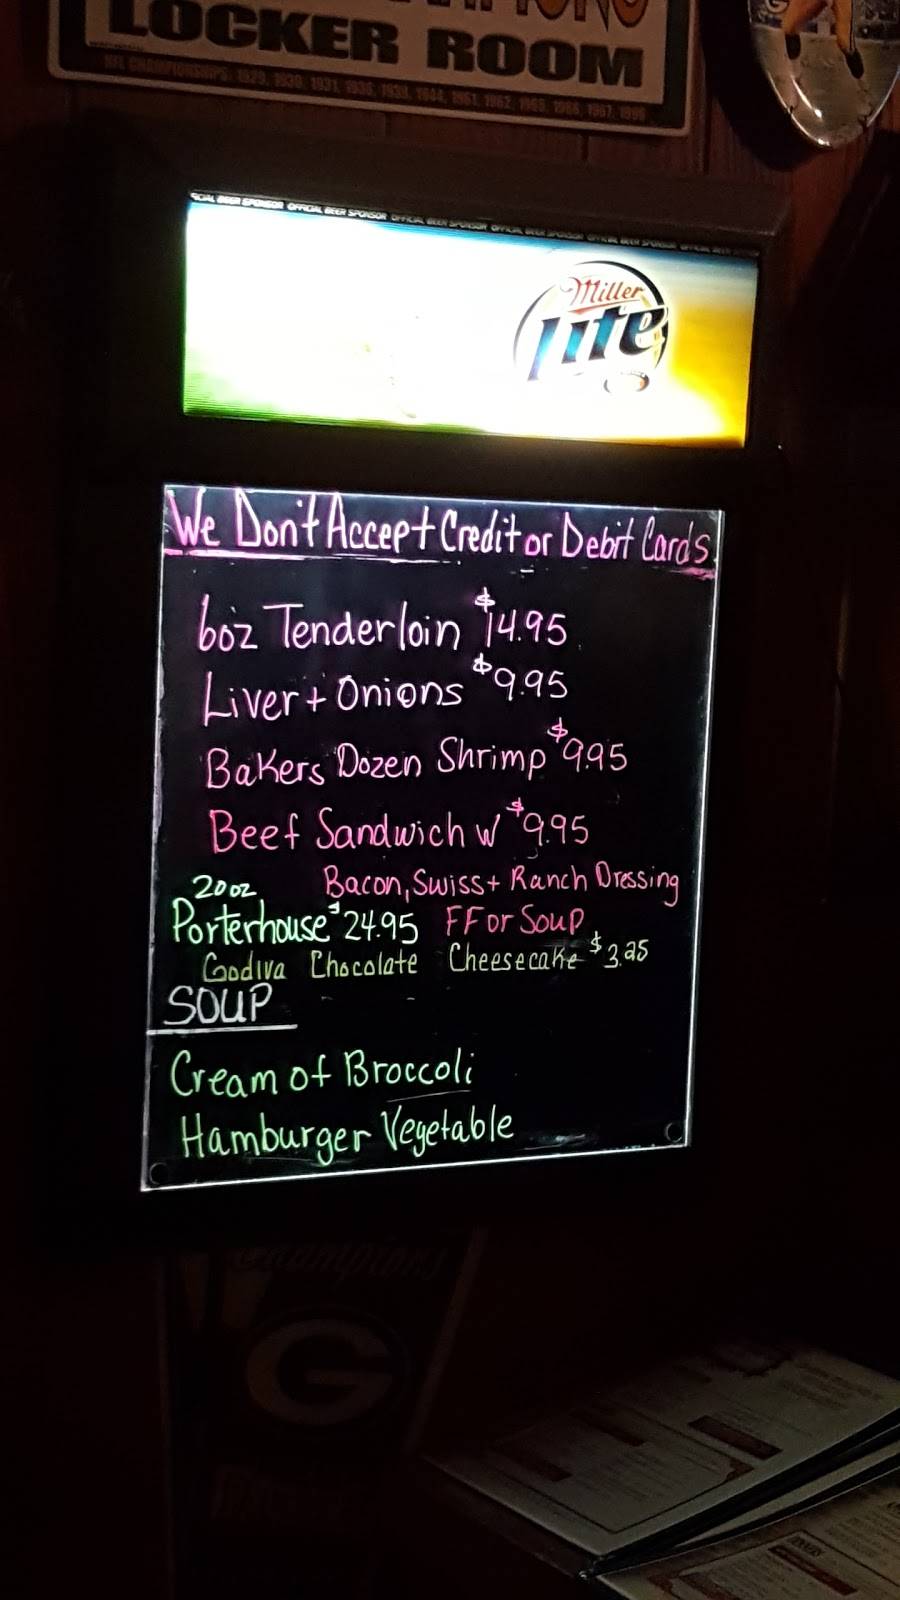 LOCKER ROOM
NFL CHAMPIONSHIPS: 1929, 1930, 1931, 1936, 1939, 1944, 1961, 1962, 1965, 1966, 1967, 1996
OFFICIAL BEER SPONSOR OFFICIAL BEER SPONSOR OFFICIAL BEER SPONSOR OFFICIAL BEER SPONSOR
Miller
Lite
We Don't Accept Credit or Debit Cards
6oz Tenderloin $14.95
Liver + Onions $9.95
Bakers Dozen Shrimp $9.95
Beef Sandwich w/ $9.95
Bacon, Swiss + Ranch Dressing
FF or Soup
20oz
Porterhouse $24.95
Godiva Chocolate Cheesecake $3.25
SOUP
Cream of Broccoli
Hamburger Vegetable
Champions
G